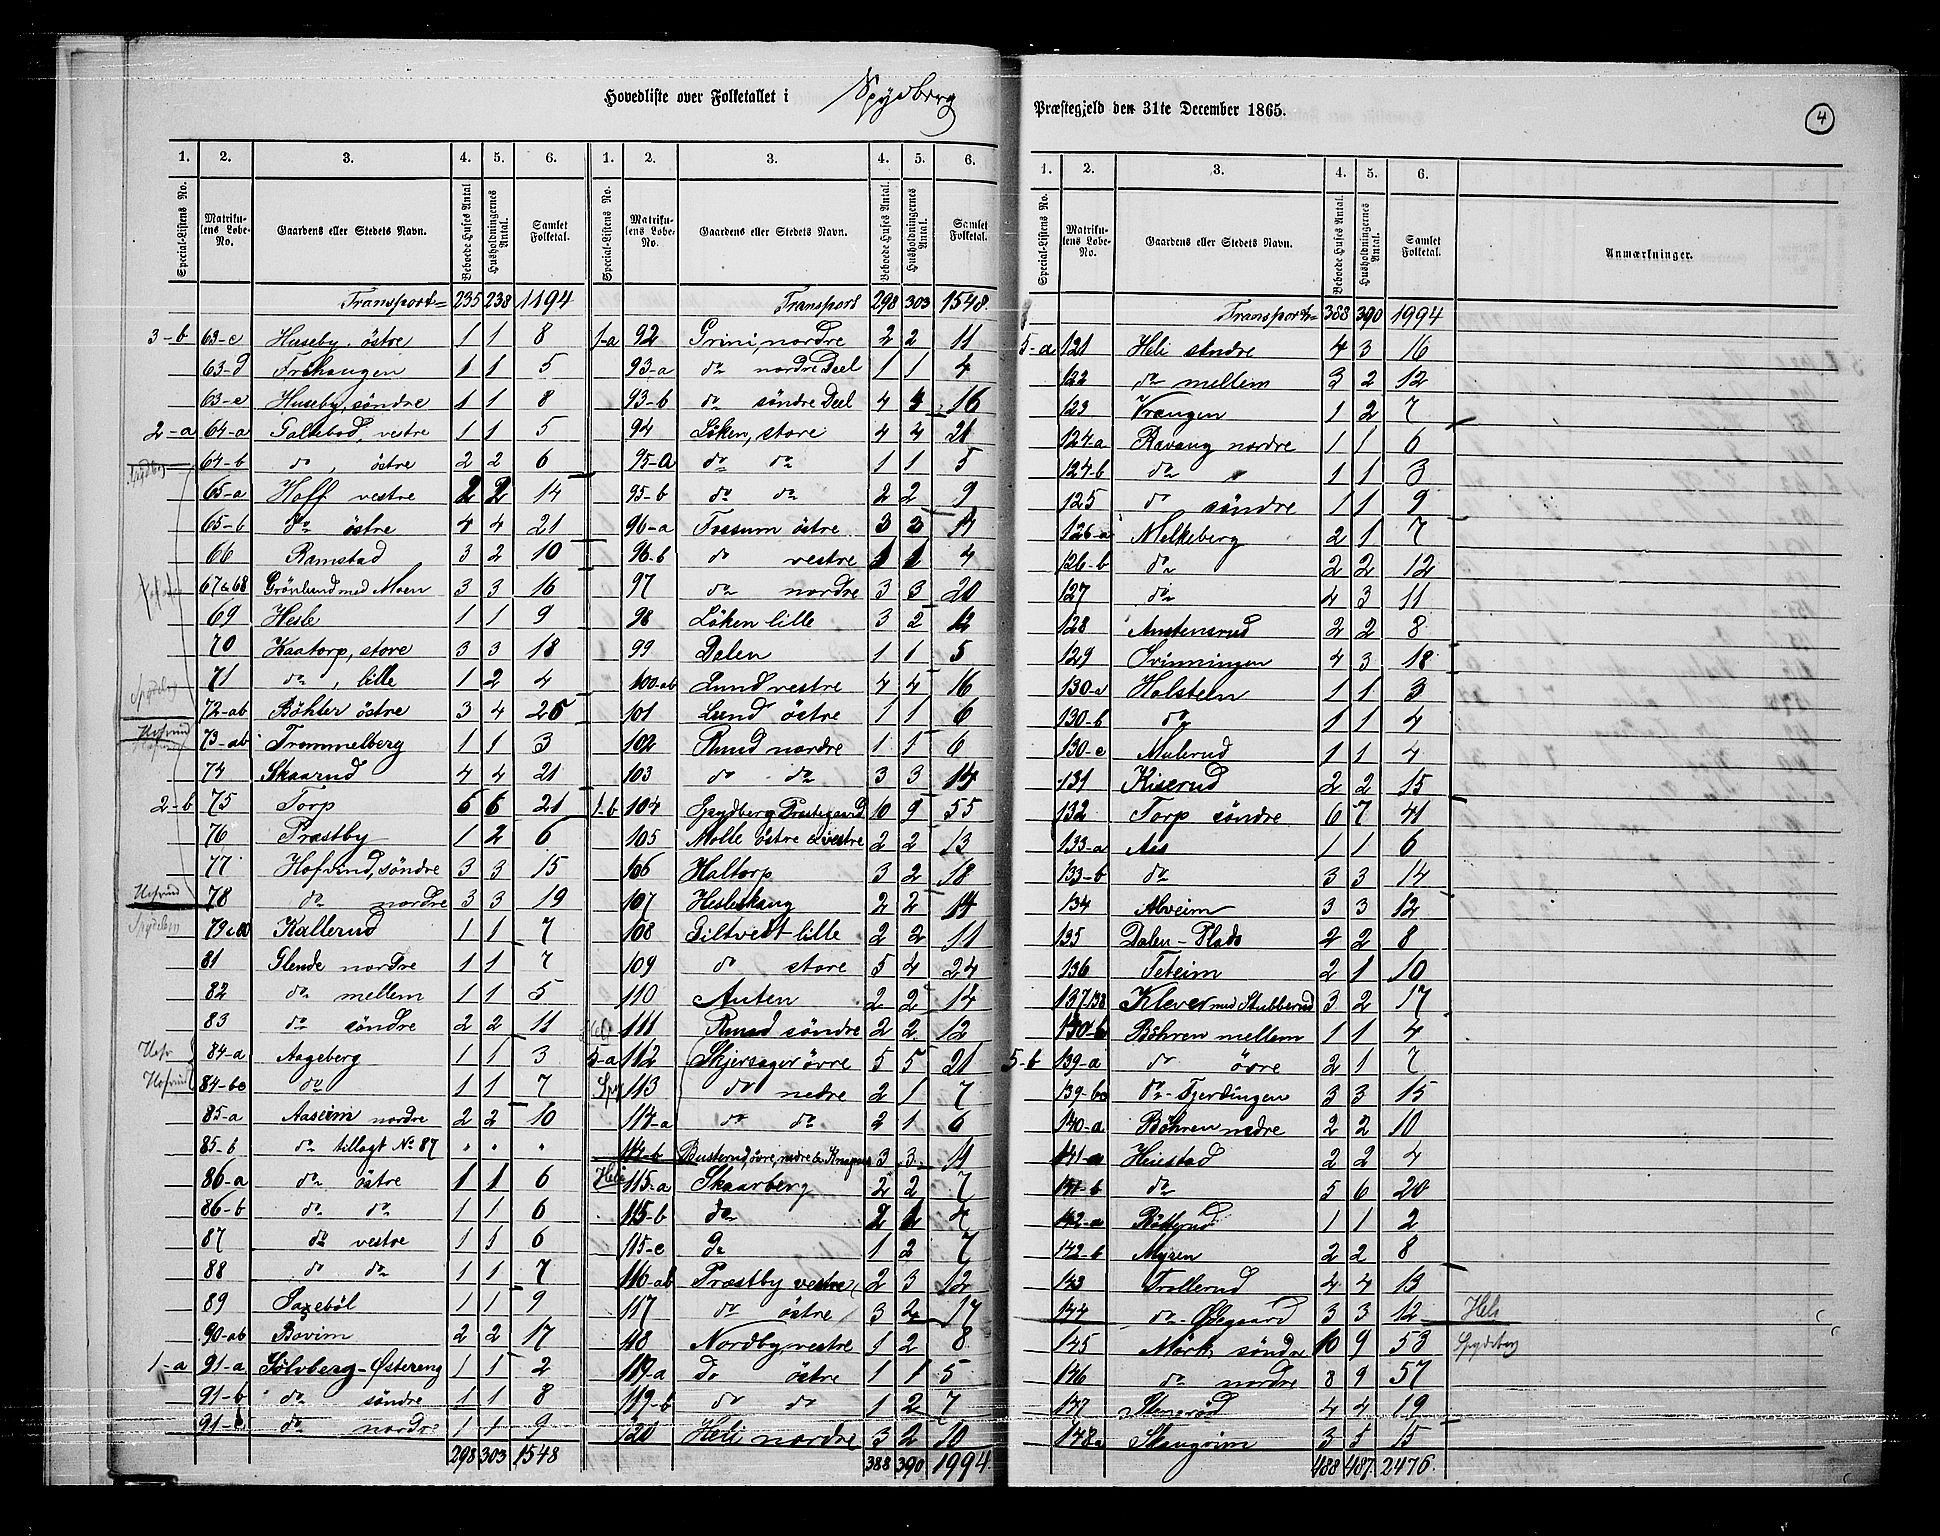 Hovedliste over Folketallet i Spydberg Præstegjeld den 31te December 1865.
4
1. 2. 3. 4. 5. 6.
Special-Listens No. Matrikulens Løbe-No. Gaardens eller Stedets Navn. Beboede Huses Antal Husholdningernes Antal. Samlet Folketal.
Transport= 235 238 1194
3-b 63-c Huseby östre 1 1 8
63-d Frøhaugen 1 1 5
63-e Huseby, söndre 1 1 8
2-a 64-a Taltebod, vestre 1 1 5
64-b do, östre 2 2 6
Spydberg
65-a Hoff vestre 2 2 14
65-b do östre 4 4 21
66 Ramstad 3 2 10
67&68 Grönlund med Moen 3 3 16
69 Hesle 1 1 9
70 Kaatorp, store 3 3 18
71 do, lille 1 2 4
Spydberg
72-ab Böhler östre 3 4 25
Hofvind
73-ab Trommelberg 1 1 3
74 Skaarud 4 4 21
2-b 75 Torp 6 6 21
76 Præstby 1 2 6
77 Hofvind, söndre 3 3 15
Hofvind
78 do nordre 3 3 19
79&80 Kallerud 1 1 7
81 Glende nordre 1 1 7
82 do mellem 1 1 5
83 do söndre 2 2 11
Hofv
84-a Aageberg 1 1 3
Hofvind
84-bc do 1 1 7
85-a Aaseim nordre 2 2 10
85-b do tillagt No 87 " " "
86-a do östre 1 1 6
86-b do do 1 1 6
87 do vestre 1 1 6
88 do do 1 1 7
89 Saxeböl 1 1 9
90-ab Bovim 2 2 17
1-a 91-a Sölvberg-Østereng 1 1 2
91-b do söndre 1 1 8
91-c do nordre 1 1 9
298 303 1548
1. 2. 3. 4. 5. 6.
Special-Listens No. Matrikulens Løbe-No. Gaardens eller Stedets Navn. Beboede Huses Antal Husholdningernes Antal. Samlet Folketal.
Transport 298 303 1548
1-a 92 Grini, nordre 2 2 11
93-a do nordre Deel 1 1 4
93-b do söndre Deel 4 4 16
94 Löken, store 4 4 21
95-a do do 1 1 5
95-b do do 2 2 9
96-a Fossum östre 3 3 17
96-b do vestre 1 1 4
97 do nordre 3 3 20
98 Löken lille 3 2 12
99 Dalen 1 1 5
100-ab Lund vestre 4 4 16
101 Lund östre 1 1 6
102 Ruud nordre 1 1 6
103 do do 3 3 14
1-b 104 Spydberg Præstegaard 10 9 55
105 Molle östre & vestre 2 2 13
106 Haltorp 3 2 18
107 Hesleskaug 2 2 14
108 Giltvedt lille 2 2 11
109 do store 5 4 24
110 Auten 2 2 14
111 Ruud söndre 2 2 12
5-a 112 Skjersager övre 5 5 21
Spy
113 do nedre 2 1 7
114-a do do 2 1 6
114-b Busterud, övre, nedre & Knapp 3 3 11
Heli
115-a Skaarberg 2 2 7
115-b do 2 2 7
115-c do 1 2 7
116-ab Præstby vestre 2 3 12
117 do östre 3 4 17
118 Nordby, vestre 1 2 8
119-a do östre 1 1 5
119-b do do 1 2 7
120 Heli nordre 3 2 10
388 390 1994
1. 2. 3. 4. 5. 6.
Special-Listens No. Matrikulens Løbe-No. Gaardens eller Stedets Navn. Beboede Huses Antal. Husholdningernes Antal. Samlet Folketal. Anmærkninger.
Transport= 388 390 1994
5-a 121 Heli söndre 4 3 16
122 do mellem 3 2 12
123 Vrangen 1 2 7
124-a Ravaug nordre 1 1 6
124-b do " 1 1 3
125 do söndre 1 1 9
126-a Melkeberg 2 1 7
126-b do 2 2 12
127 do 4 3 11
128 Austensrud 2 2 8
129 Tvinningen 4 3 18
130-a Holsteen 1 1 3
130-b do 1 1 4
130-c Mulerud 1 1 4
131 Kiserud 2 2 15
132 Torp söndre 6 7 41
133-a Aas 1 1 6
133-b do 3 3 14
134 Alveim 3 3 12
135 Dalen-Plads 2 2 8
136 Teteim 2 1 10
137/138 Klever med Stubberud 3 2 17
Böhren mellem 1 1 4
5-b 139-a do övre 2 1 7
139-bc do-Fjerdingen 3 3 15
140-a Böhren nedre 2 2 10
141-a Hiiestad 2 2 4
141-b do 5 6 20
142-a Röttrud 1 1 2
142-b Myren 2 2 8
143 Trollerud 4 4 13
144 do-Ødegaard 3 3 12 Heli
145 Mörk, söndre 10 9 53 Spydeberg
146 do nordre 8 9 57
147 Stensrød 4 4 19
148a Skaugvim 3 5 15
488 487 2476